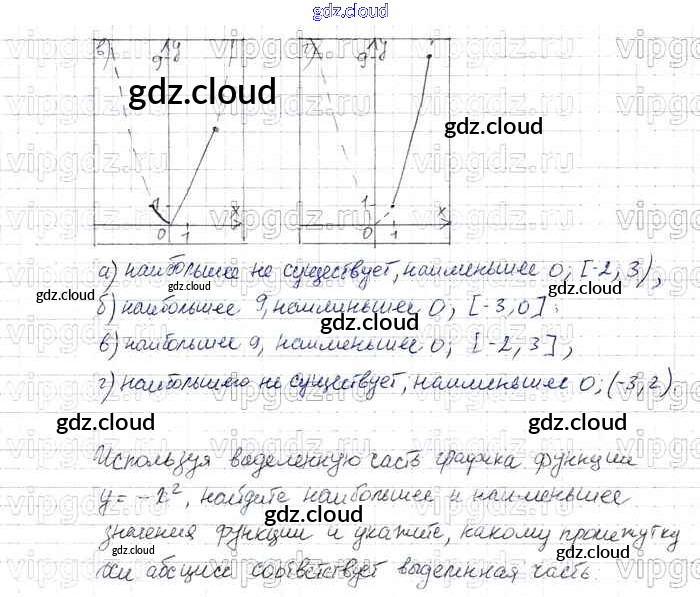 gdz.cloud
в) y г) y
9 9
gdz.cloud
gdz.cloud
1 x 1 x
0 1 0 1
а) наибольшее не существует, наименьшее 0; [-2, 3),
gdz.cloud gdz.cloud gdz.cloud
б) наибольшее 9, наименьшее 0; [-3; 0];
gdz.cloud
в) наибольшее 9, наименьшее 0; [-2, 3],
г) наибольшего не существует, наименьшее 0; (-3, 2)
gdz.cloud gdz.cloud
Используя выделенную часть графика функции
y = -x², найдите наибольшее и наименьшее
gdz.cloud
значения функции и укажите, какому промежутку
оси абсцисс соответствует выделенная часть.
gdz.cloud gdz.cloud